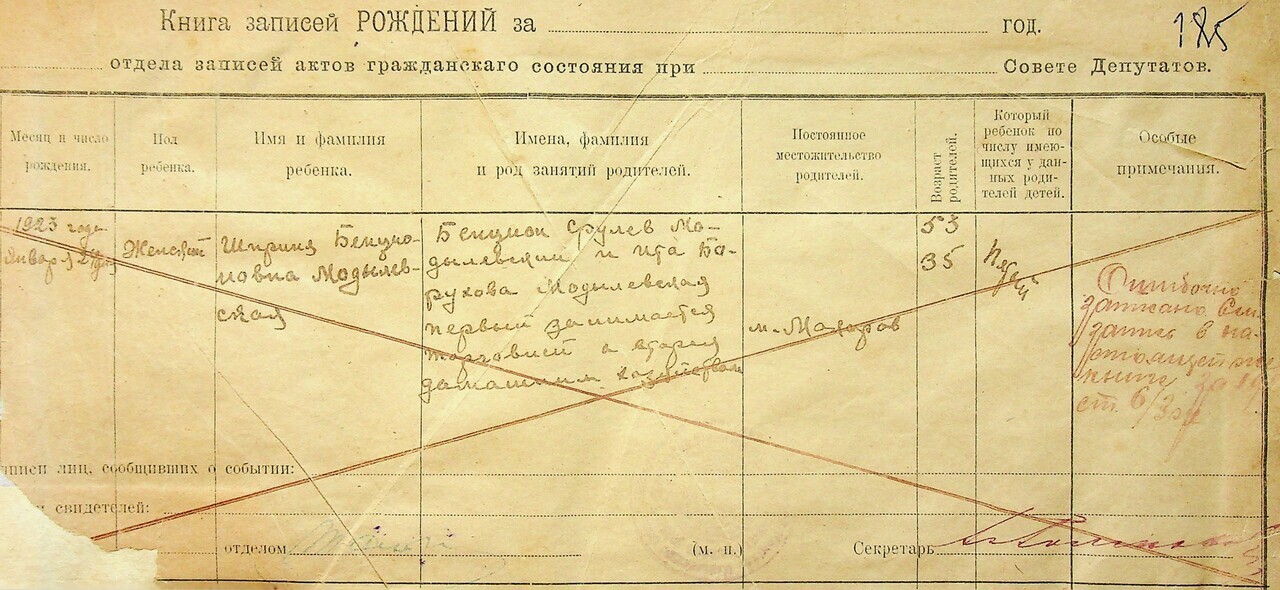 Книга записей РОЖДЕНИЙ за год.
185
отдела записей актов гражданскаго состояния при Совете Депутатов.
Месяц и число рождения.
Пол ребенка.
Имя и фамилия ребенка.
Имена, фамилия и род занятий родителей.
Постоянное местожительство родителей.
Возраст родителей.
Который ребенок по числу имеющихся у данных родителей детей.
Особые примечания.
1923 года
Январ
Женский
Бенцио-
новна Модылев-
ская
Бенцион Срулев Мо-
дылевский и Ита Ба-
рухова Модылевская
первый занимается
торговлей а вторая
домашним хозяйством
м. Макаров
53
35
Пятый
Ошибочно
записано См.
запись в на-
стоящей же
книге за
ст.
писи лиц, сообщивших о событии:
и свидетелей:
отделом
(м. п.)
Секретарь